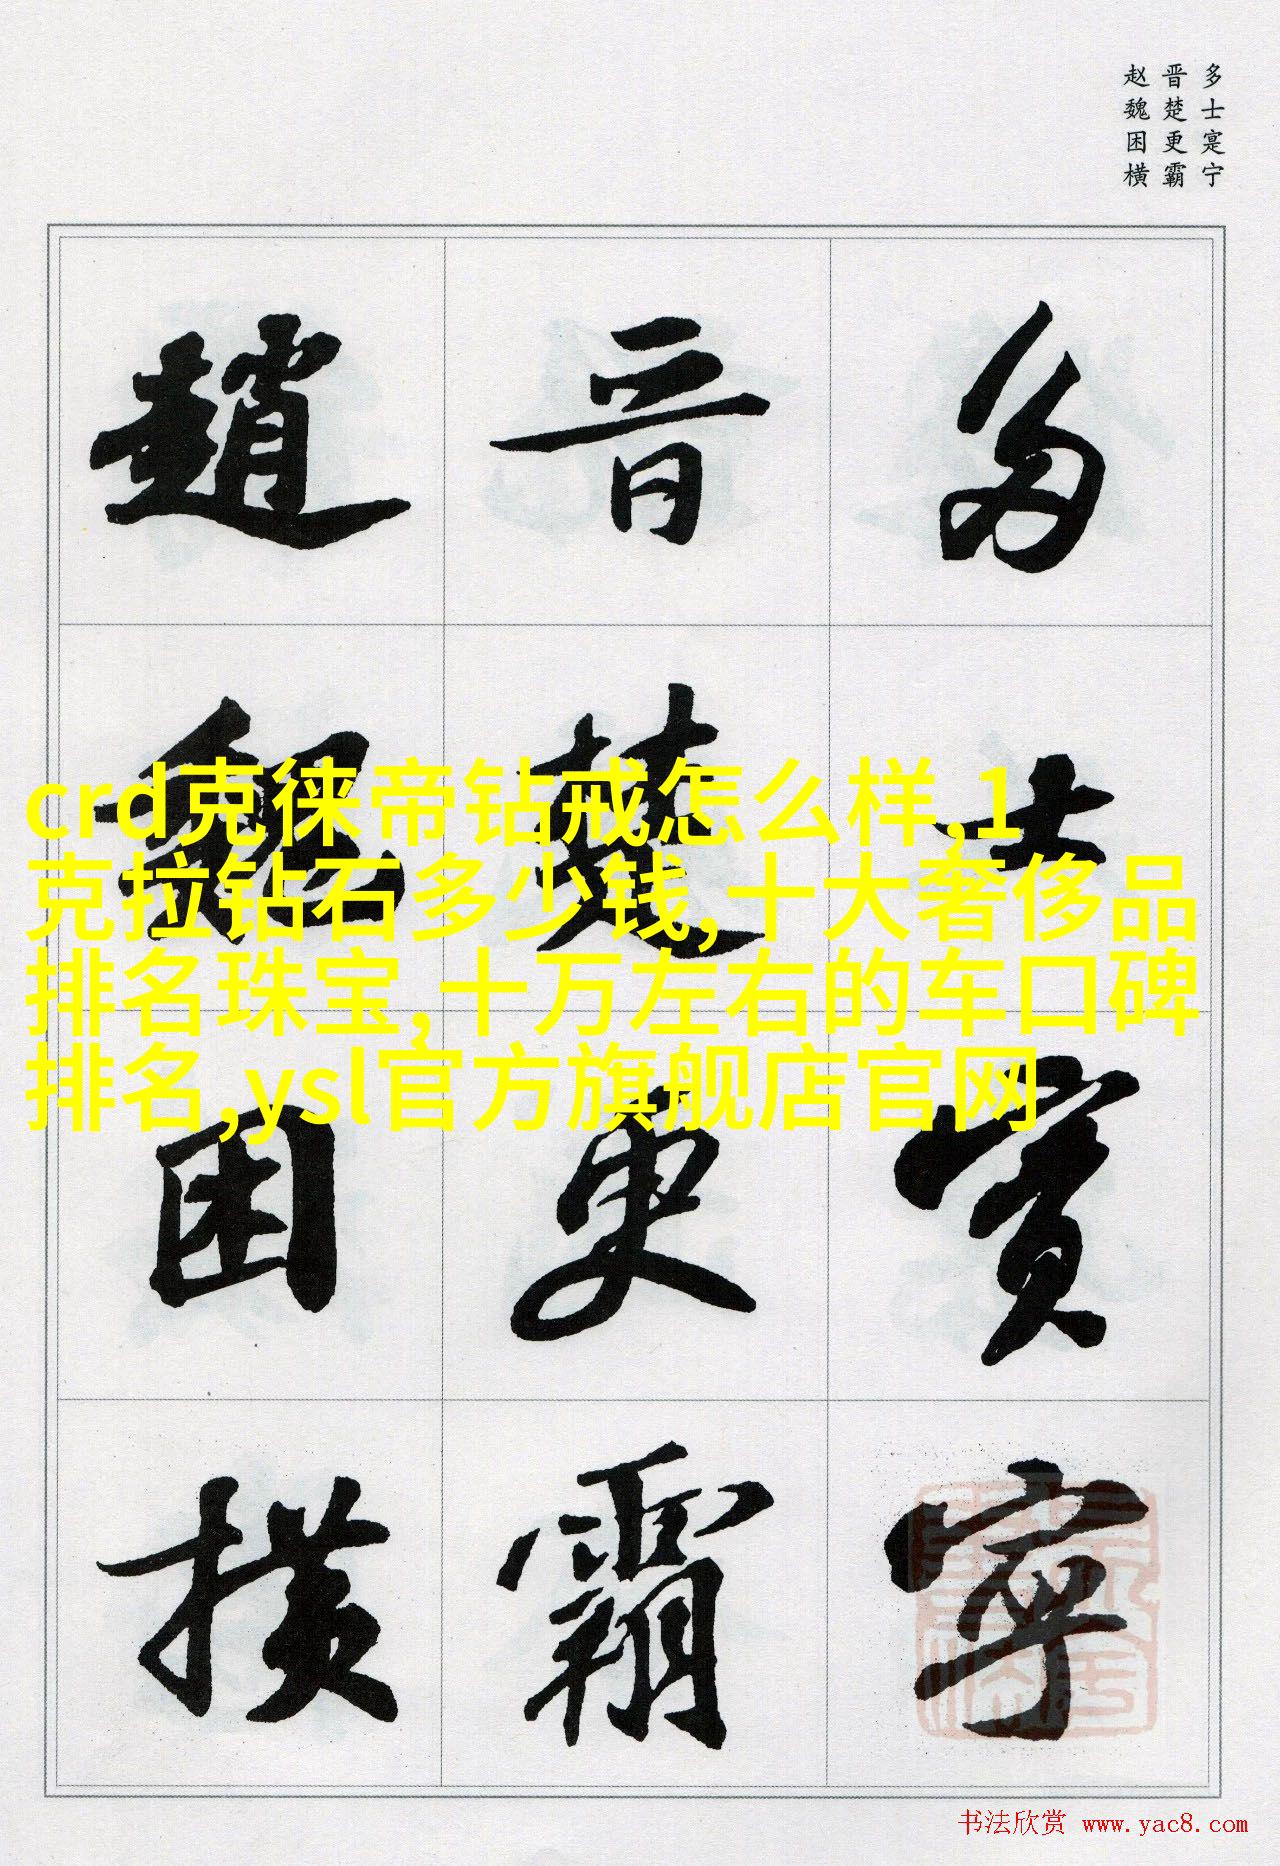 多士寔宁
晋楚更霸
赵魏困横
多士實寧
晋楚更霸
趙魏困横
crd克徕帝钻戒怎么样,1
克拉钻石多少钱,十大奢侈品
排名珠宝,十万左右的车口碑
排名,ysl官方旗舰店官网
书法欣赏 www.yac8.com